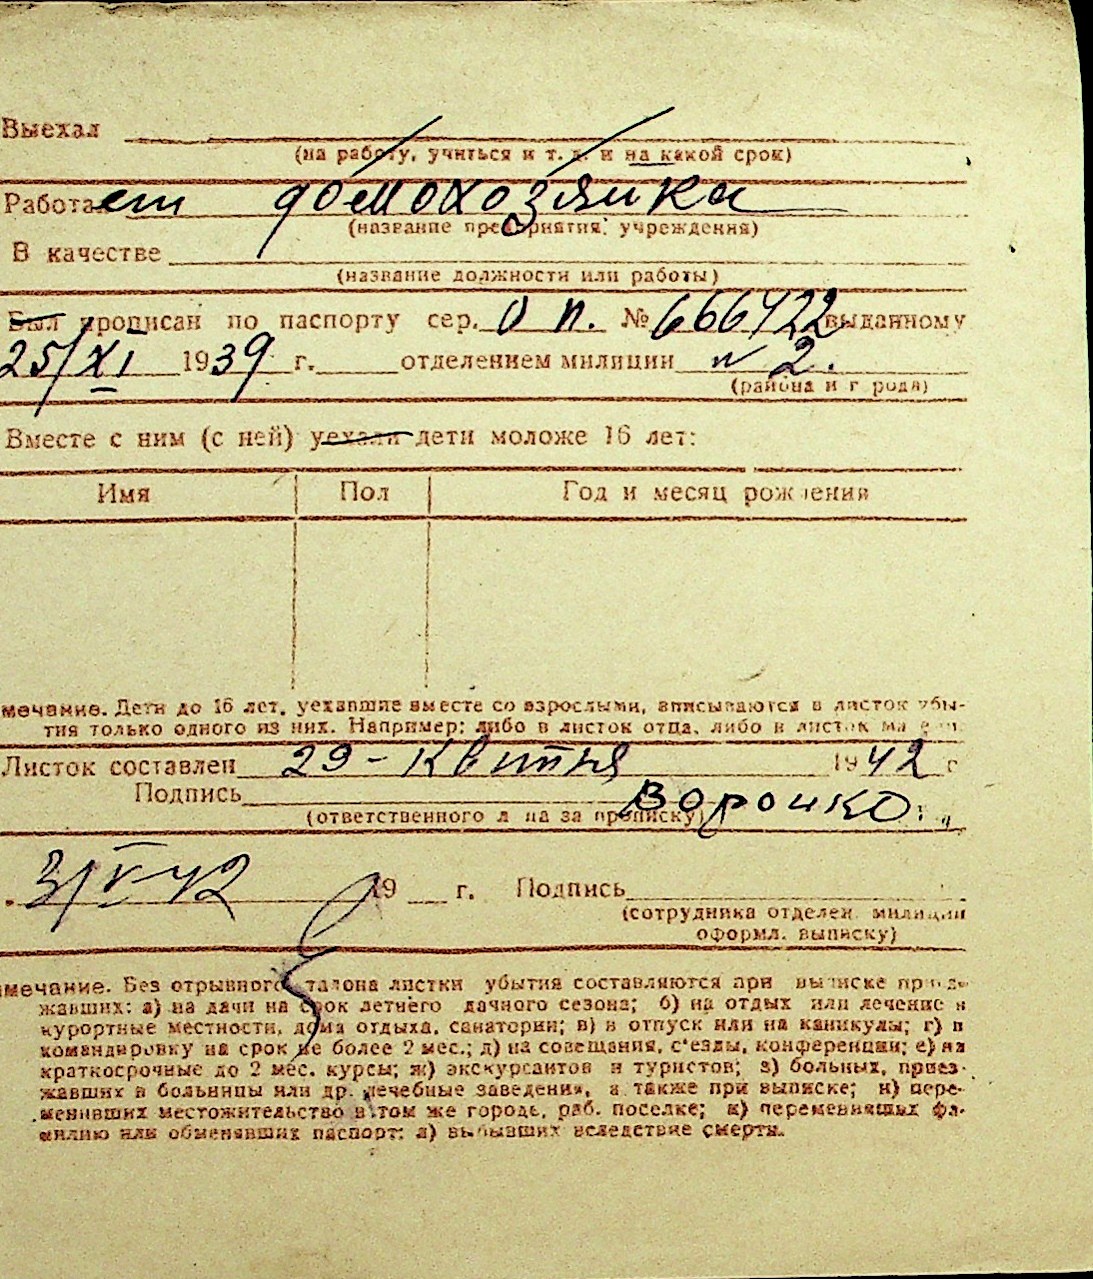 Выехал
(на работу, учиться и т. д. и на какой срок)
Работает домохозяйка
(название предприятия, учреждения)
В качестве
(название должности или работы)
Был прописан по паспорту сер. О П. № 666422 выданному
25/XI 1939 г. отделением милиции № 2.
(района и города)
Вместе с ним (с ней) уехали дети моложе 16 лет:
Имя Пол Год и месяц рождения
мечание. Дети до 16 лет, уехавшие вместе со взрослыми, вписываются в листок убы-
тия только одного из них. Например: либо в листок отца, либо в листок матери.
Листок составлен 29 - Квитня 1942 г
Подпись Воронко
(ответственного лица за прописку)
3/V 42 19 г. Подпись
(сотрудника отделен. милиции
оформл. выписку)
мечание. Без отрывного талона листки убытия составляются при выписке приез-
жавших: а) на дачи на срок летнего дачного сезона; б) на отдых или лечение в
курортные местности, дома отдыха, санатории; в) в отпуск или на каникулы; г) в
командировку на срок не более 2 мес.; д) на совещания, с'езды, конференции; е) на
краткосрочные до 2 мес. курсы; ж) экскурсантов и туристов; з) больных, приез-
жавших в больницы или др. лечебные заведения, а также при выписке; и) пере-
менивших местожительство в том же городе, раб. поселке; к) переменивших фа-
милию или обменявших паспорт; л) выбывших вследствие смерти.